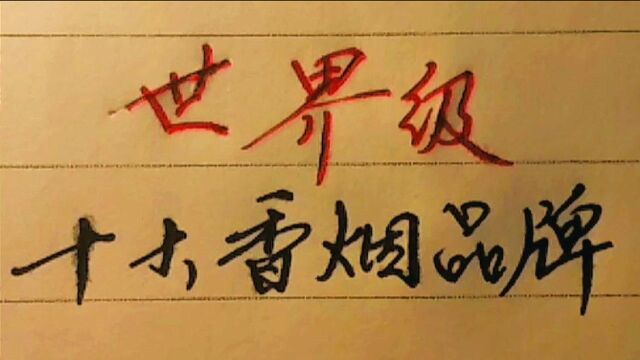 世界级
十大香烟品牌